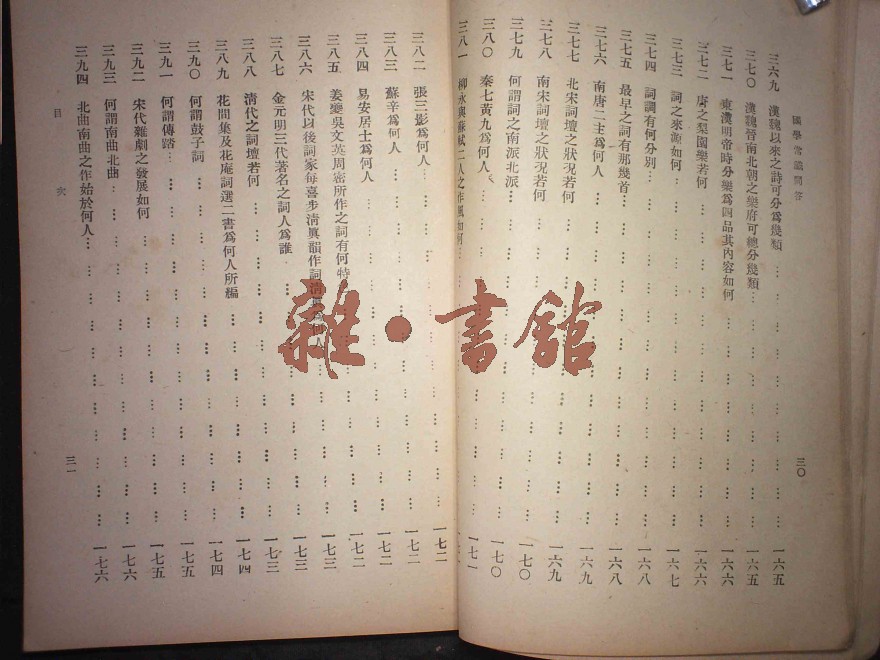 國學常識問答
三六九 漢魏以來之詩可分爲幾類 一六五
三七〇 漢魏晉南北朝之樂府可總分幾類 一六五
三七一 東漢明帝時分樂爲四品其內容如何 一六六
三七二 唐之梨園樂若何 一六六
三七三 詞之來源如何 一六七
三七四 詞調有何分別 一六八
三七五 最早之詞有那幾首 一六八
三七六 南唐二主爲何人 一六九
三七七 北宋詞壇之狀況若何 一六九
三七八 南宋詞壇之狀況若何 一七〇
三七九 何謂詞之南派北派 一七〇
三八〇 秦七黃九爲何人 一七一
三八一 柳永與蘇軾二人之作風如何
三〇
三八二 張三影爲何人 一七二
三八三 蘇辛爲何人 一七二
三八四 易安居士爲何人 一七二
三八五 姜夔吳文英周密所作之詞有何特 一七三
三八六 宋代以後詞家每喜步淸眞韻作詞淸眞爲何人 一七三
三八七 金元明三代著名之詞人爲誰 一七三
三八八 淸代之詞壇若何 一七四
三八九 花間集及花庵詞選二書爲何人所編 一七四
三九〇 何謂鼓子詞 一七五
三九一 何謂傳踏 一七五
三九二 宋代雜劇之發展如何 一七五
三九三 何謂南曲北曲 一七六
三九四 北曲南曲之作始於何人 一七六
目 次
三一
雜·書館